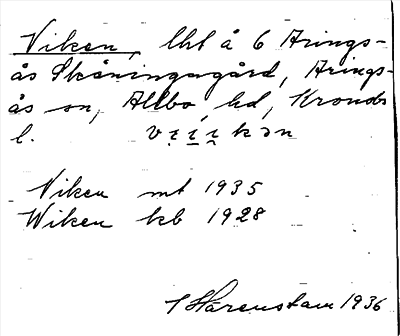 Viken, lht å 6 Arings-
ås Skåningagård, Arings-
ås sn, Allbo hd, Kronobs
l. vi̤i̱i̯kən
Viken mt 1935
Wiken kb 1928
Härenstam 1936